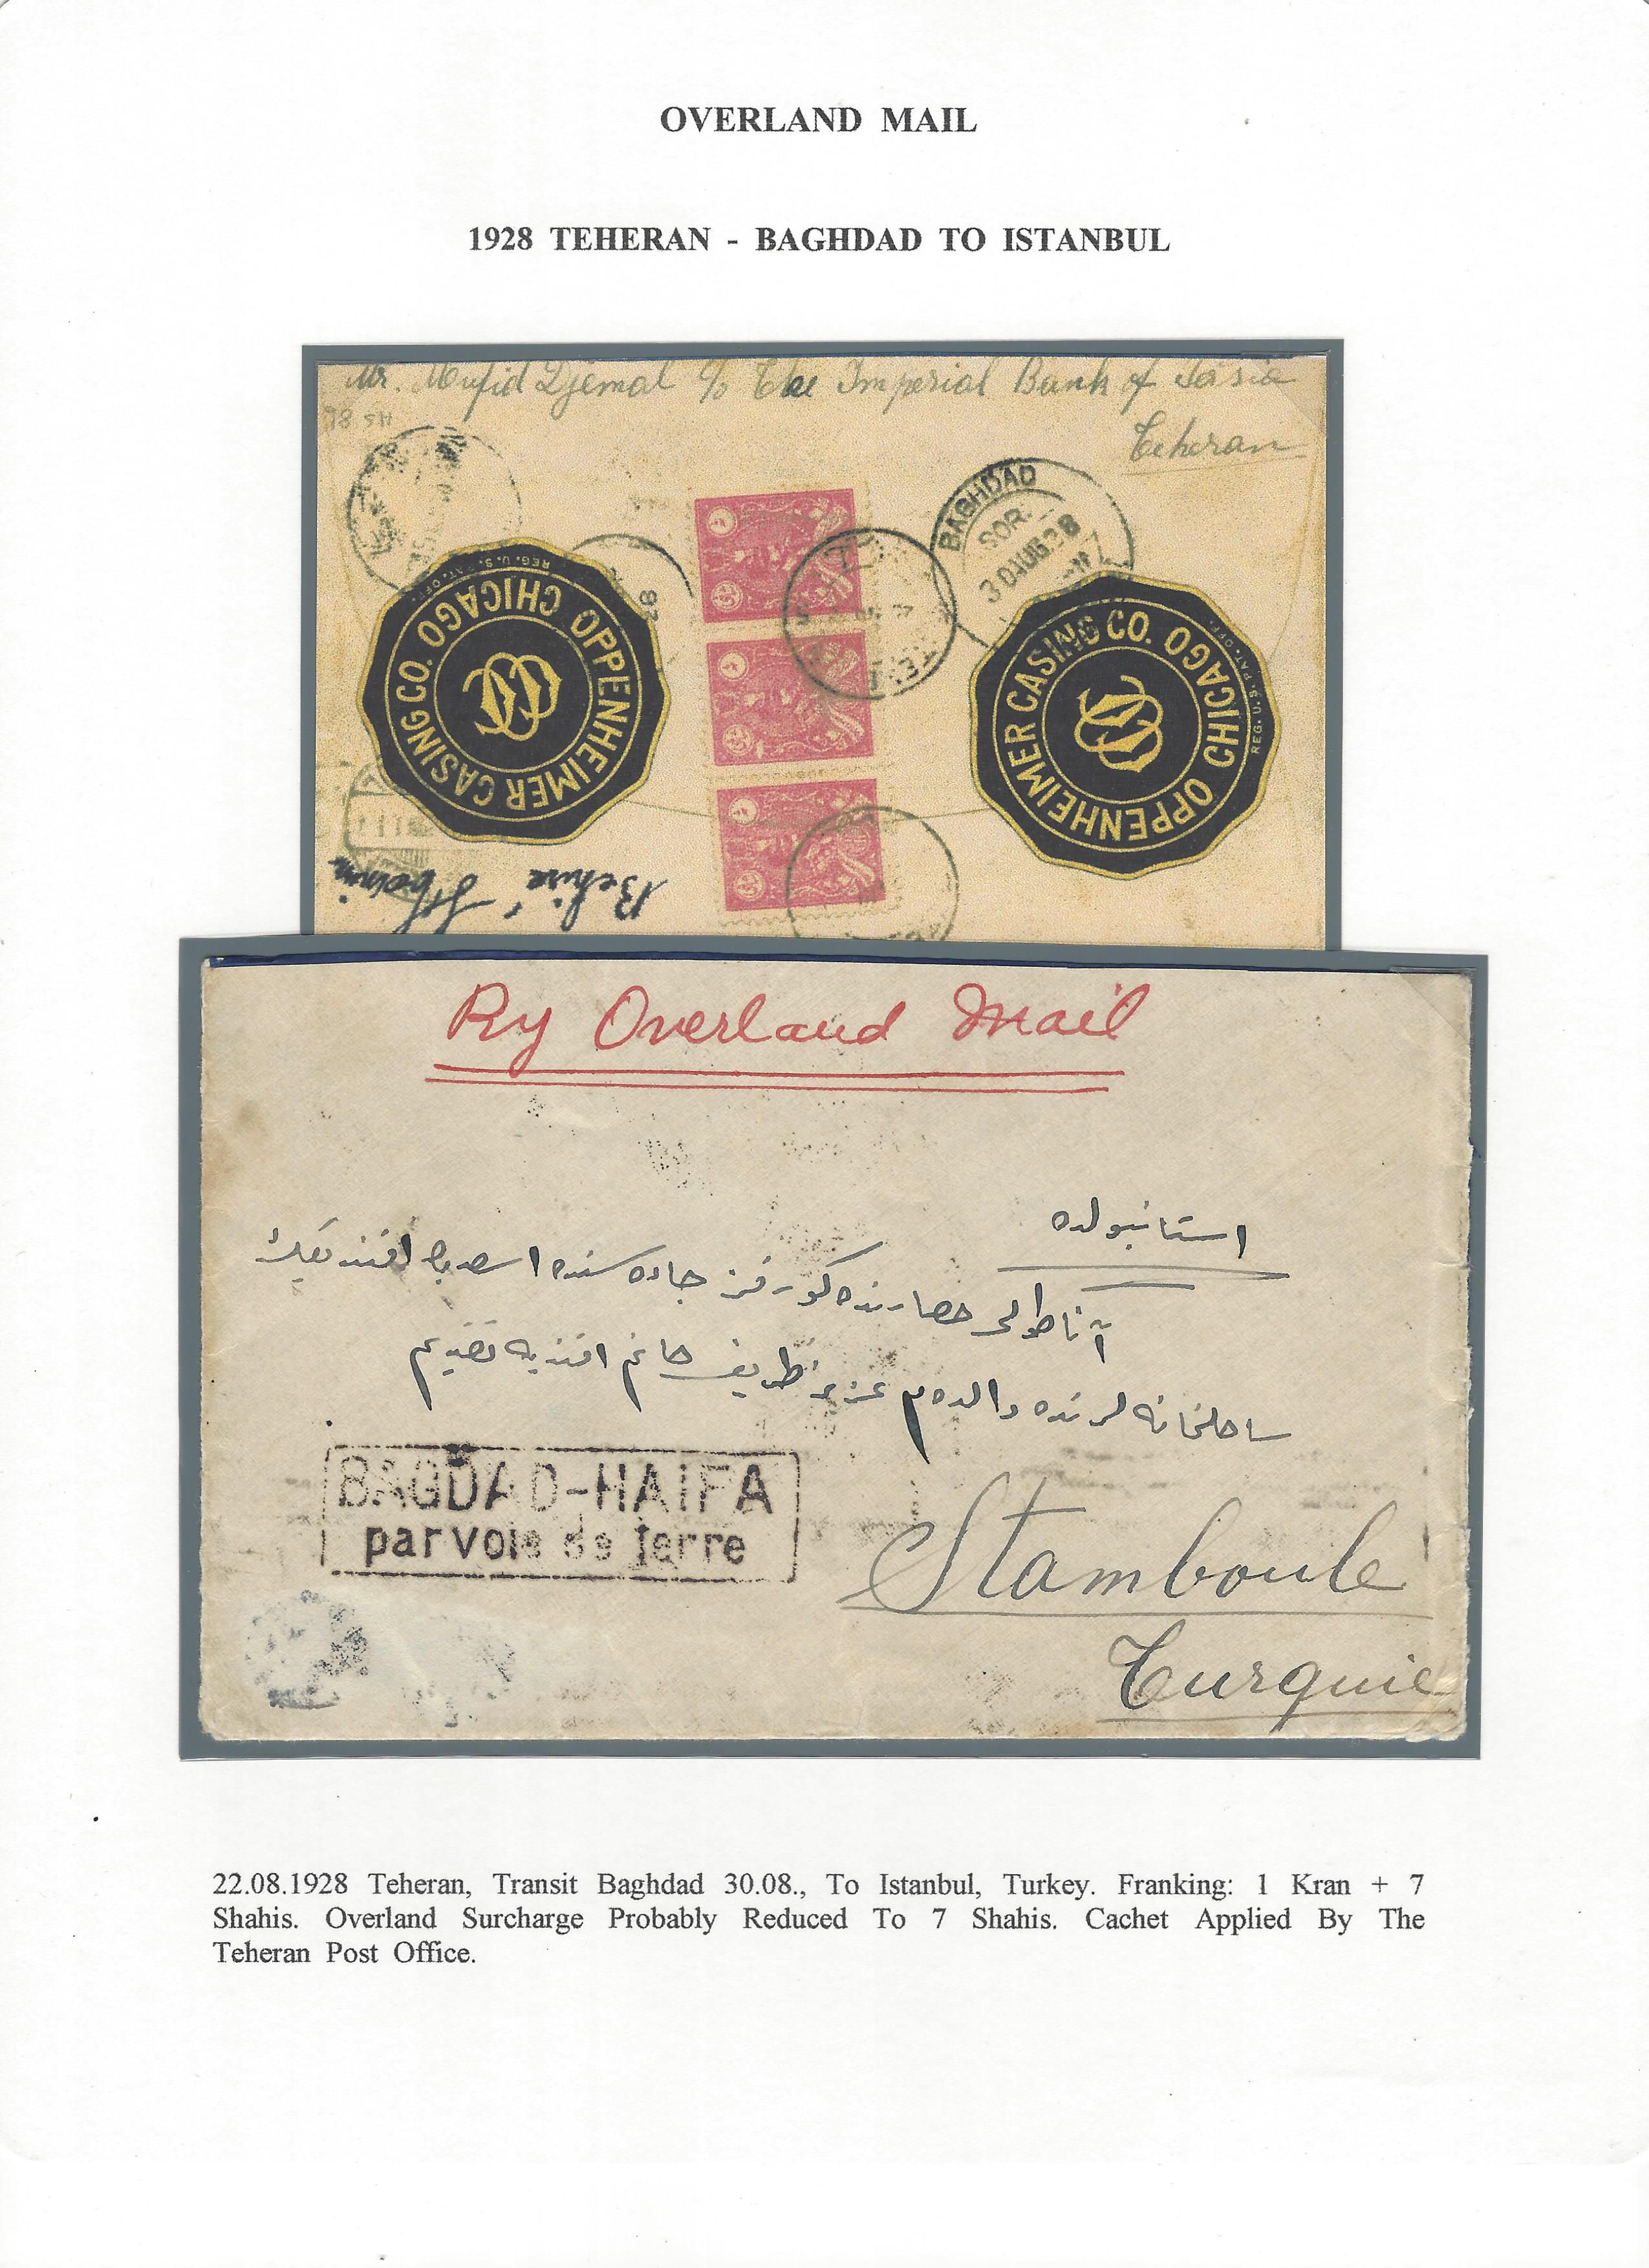 OVERLAND MAIL
1928 TEHERAN - BAGHDAD TO ISTANBUL
Mr. Mufid Djemal c/o The Imperial Bank of Persia
Teheran
BAGHDAD
SOR.
30 AUG 28
OPPENHEIMER CASING CO. CHICAGO
REG. U.S. PAT. OFF.
OPPENHEIMER CASING CO. CHICAGO
REG. U.S. PAT. OFF.
By Overland Mail
استانبولده
آناطولی حصارنده کورفز جاده سنده
ساحلخانه لرنده والده م خانم افندیه تقدیم
BAGDAD-HAIFA
par voie de terre
Stamboule
Turquie
22.08.1928 Teheran, Transit Baghdad 30.08., To Istanbul, Turkey. Franking: 1 Kran + 7
Shahis. Overland Surcharge Probably Reduced To 7 Shahis. Cachet Applied By The
Teheran Post Office.